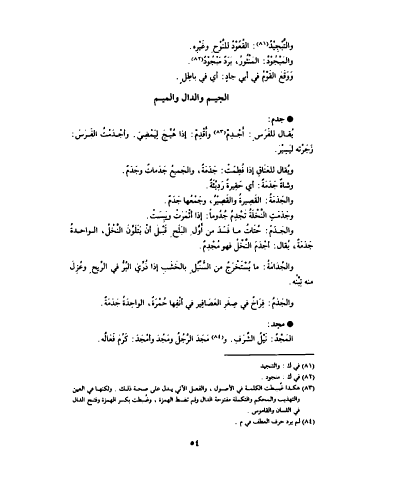 والتَّبْجِيْدُ(٨١): القُعُوْدُ للنَّوْحِ وغَيْرِه.
والمَبْجُوْدُ: المَنْثُوْرُ، بَرَدٌ مَبْجُوْدٌ(٨٢).
ووَقَعَ القَوْمُ في أبي جادٍ: أي في باطِلٍ.
الجيـم والدال والميـم
● جدم:
يُقال للفَرَسِ: أَجْدِمْ(٨٣) وأَقْدِمْ: إذا هُيِّجَ لِيَمْضِيَ. وأجْدَمْتُ الفَرَسَ:
زَجَرْتَه لِيَسِيْرَ.
ويُقال للعَنَاقِ إذا فُطِمَتْ: جَدَمَةٌ، والجَميعُ جَدَماتٌ وجَدَمٌ.
وشاةٌ جَدَمَةٌ: أي حَقِيرةٌ رَدِيْئَةٌ.
والجَدَمَةُ: القَصِيرةُ والقَصِيْرُ، وجَمْعُها جَدَمٌ.
وجَدَمَتِ النَّخْلَةُ تَجْدِمُ جُدُوماً: إذا أَثْمَرَتْ ويَبِسَتْ.
والجَدَمُ: حُثَاتُ ما فَسَدَ من أَوَّلِ البَلَحِ قَبْلَ أنْ يَتَلَوَّنَ النَّخْلُ، الواحـدةُ
جَدَمَةٌ، يُقال: أجْدَمَ النَّخْلُ فهو مُجْدِمٌ.
والجُدَامَةُ: ما يُسْتَخْرَجُ من السُّنْبُلِ بالخَشَبِ إذا ذُرِّيَ البُرُّ في الرِّيحِ وعُزِلَ
منه تِبْنُه.
والجَدَمُ: فِرَاخٌ في صِغَرِ العَصَافِيرِ في أنْفِها حُمْرَةٌ، الواحِدَةُ جَدَمَةٌ.
● مجد:
المَجْدُ: نَيْلُ الشَّرَفِ. و(٨٤) مَجَدَ الرَّجُلُ ومَجُدَ وأمْجَدَ: كَرُمَ فَعَالُه.
(٨١) في ك: والتنجيد
(٨٢) في ك: منجود.
(٨٣) هكذا ضُبطت الكلمة في الأصول، والفصل الآتي يدل على صحة ذلك. ولكنها في العين
والتهذيب والمحكم والتكملة مفتوحة الدال ولم تضبط الهمزة، وضُبطت بكسر الهمزة وفتح الدال
في اللسان والقاموس.
(٨٤) لم يرد حرف العطف في م.
٥٤